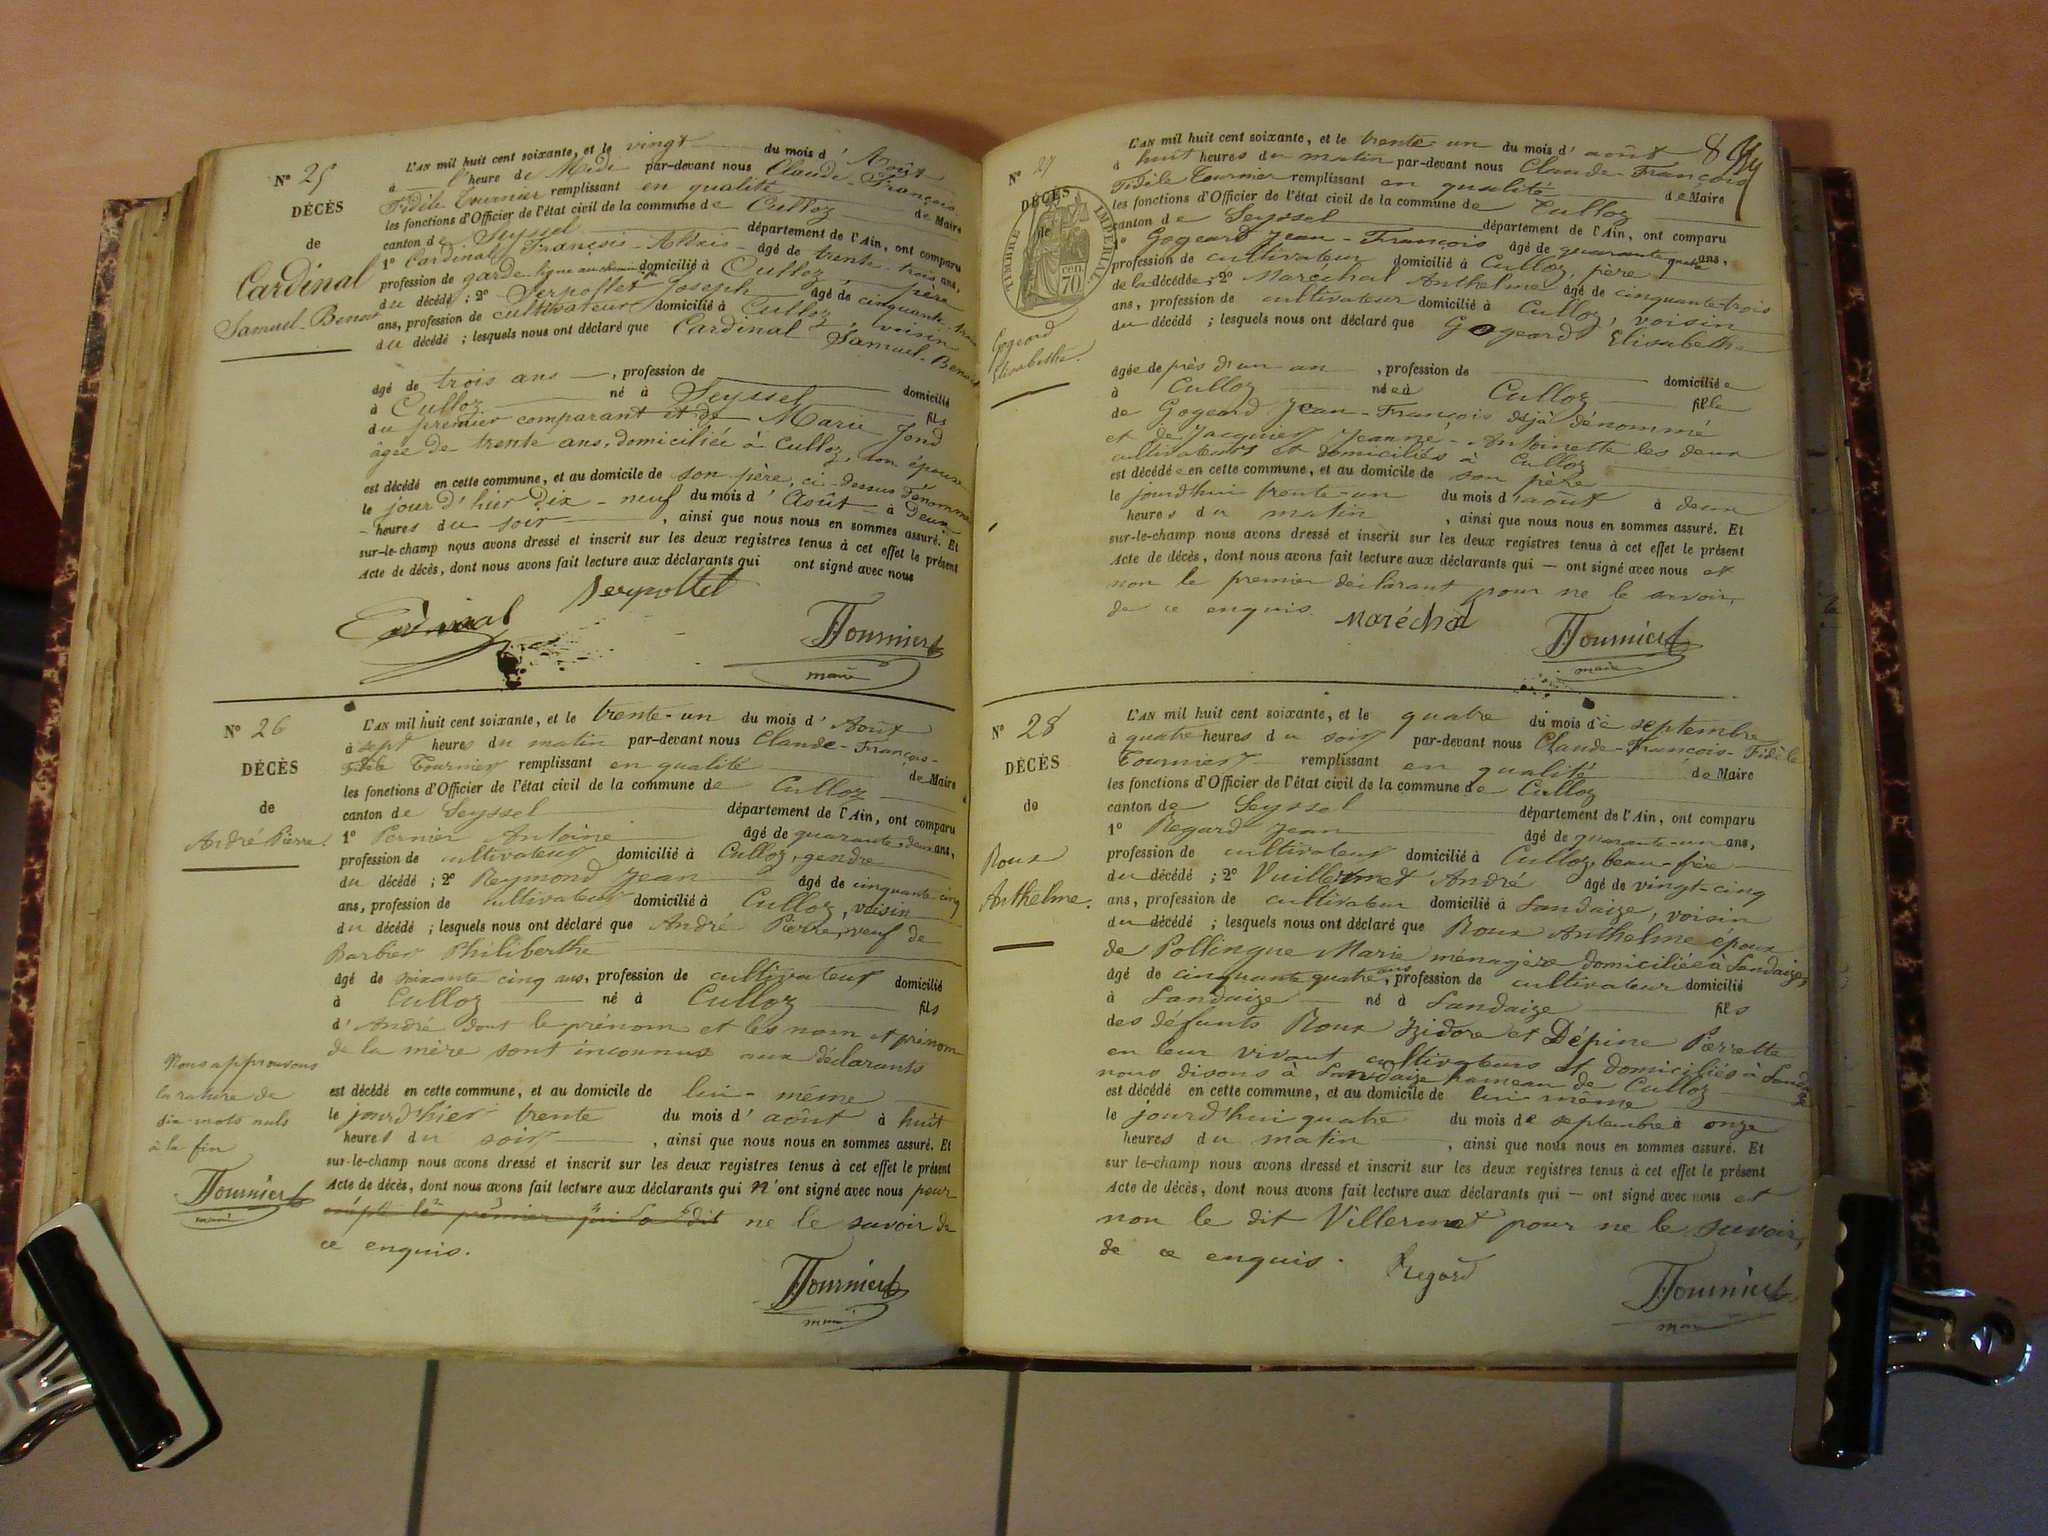 N° 25
DÉCÈS
de
Cardinal
Samuel-Benoit
L'AN mil huit cent soixante, et le vingt du mois d'Août
à l'heure de Midi par-devant nous Claude-François
Fidèle Tournier remplissant en qualité de Maire
les fonctions d'Officier de l'état civil de la commune de Culloz
canton de Seyssel département de l'Ain, ont comparu
1° Cardinal François-Alexis âgé de trente-trois ans,
profession de garde ligne au chemin domicilié à Culloz, père
du décédé ; 2° Serpollet Joseph âgé de cinquante-trois
ans, profession de cultivateur domicilié à Culloz, voisin
du décédé ; lesquels nous ont déclaré que Cardinal Samuel-Benoit
âgé de trois ans, profession de domicilié
à Culloz né à Seyssel fils
du premier comparant et de Marie Jond
âgée de trente ans, domiciliée à Culloz, son épouse
est décédé en cette commune, et au domicile de son père, ci-dessus dénommé
le jour d'hier dix-neuf du mois d'Août à deux
heures du soir, ainsi que nous nous en sommes assuré. Et
sur-le-champ nous avons dressé et inscrit sur les deux registres tenus à cet effet le présent
Acte de décès, dont nous avons fait lecture aux déclarants qui ont signé avec nous
Serpollet
Cardinal
Tournier
maire
N° 26
DÉCÈS
de
André Pierre.
L'AN mil huit cent soixante, et le trente-un du mois d'Août
à sept heures du matin par-devant nous Claude-François-
Fidèle Tournier remplissant en qualité de Maire
les fonctions d'Officier de l'état civil de la commune de Culloz
canton de Seyssel département de l'Ain, ont comparu
1° Pernier Antoine âgé de quarante-deux ans,
profession de cultivateur domicilié à Culloz, gendre
du décédé ; 2° Reymond Jean âgé de cinquante-cinq
ans, profession de cultivateur domicilié à Culloz, voisin
du décédé ; lesquels nous ont déclaré que André Pierre, veuf de
Barbier Philiberthe
âgé de soixante cinq ans, profession de cultivateur domicilié
à Culloz né à Culloz fils
d'André dont le prénom et les nom et prénom
de la mère sont inconnus aux déclarants
est décédé en cette commune, et au domicile de lui-même
le jour d'hier trente du mois d'août à huit
heures du soir, ainsi que nous nous en sommes assuré. Et
sur-le-champ nous avons dressé et inscrit sur les deux registres tenus à cet effet le présent
Acte de décès, dont nous avons fait lecture aux déclarants qui n'ont signé avec nous pour
ne le savoir de
ce enquis.
Nous approuvons
la rature de
six mots nuls
à la fin
Tournier
maire
Tournier
maire
8
N° 27
DÉCÈS
de
TIMBRE IMPÉRIAL
70 cen
Gogeard
Elisabethe.
L'AN mil huit cent soixante, et le trente-un du mois d'août
à huit heures du matin par-devant nous Claude-François
Fidèle Tournier remplissant en qualité de Maire
les fonctions d'Officier de l'état civil de la commune de Culloz
canton de Seyssel département de l'Ain, ont comparu
1° Gogeard Jean-François âgé de quarante quatre ans,
profession de cultivateur domicilié à Culloz, père
de la décédée ; 2° Maréchal Anthelme âgé de cinquante-trois
ans, profession de cultivateur domicilié à Culloz, voisin
du décédé ; lesquels nous ont déclaré que Gogeard Elisabethe
âgée de près d'un an, profession de domiciliée
à Culloz née à Culloz fille
de Gogeard Jean-François déjà dénommé
et de Jacquier Jeanne-Antoinette les deux
cultivateurs et domiciliés à Culloz
est décédée en cette commune, et au domicile de son père
le jourd'hui trente-un du mois d'août à deux
heures du matin, ainsi que nous nous en sommes assuré. Et
sur-le-champ nous avons dressé et inscrit sur les deux registres tenus à cet effet le présent
Acte de décès, dont nous avons fait lecture aux déclarants qui — ont signé avec nous et
non le premier déclarant pour ne le savoir,
de ce enquis.
Maréchal
Tournier
maire
N° 28
DÉCÈS
de
Roux
Anthelme.
L'AN mil huit cent soixante, et le quatre du mois de septembre
à quatre heures du soir par-devant nous Claude-François-Fidèle
Tournier remplissant en qualité de Maire
les fonctions d'Officier de l'état civil de la commune de Culloz
canton de Seyssel département de l'Ain, ont comparu
1° Regard Jean âgé de quarante-un ans,
profession de cultivateur domicilié à Culloz, beau-frère
du décédé ; 2° Vuillermet André âgé de vingt-cinq
ans, profession de cultivateur domicilié à Landaize, voisin
du décédé ; lesquels nous ont déclaré que Roux Anthelme époux
de Pollingue Marie ménagère domiciliée à Landaize,
âgé de cinquante quatre ans, profession de cultivateur domicilié
à Landaize né à Landaize fils
des défunts Roux Izidore et Dépine Pierrette
en leur vivant cultivateurs et domiciliés à Landaize
nous disons à Landaize hameau de Culloz
est décédé en cette commune, et au domicile de lui-même
le jourd'hui quatre du mois de septembre à onze
heures du matin, ainsi que nous nous en sommes assuré. Et
sur-le-champ nous avons dressé et inscrit sur les deux registres tenus à cet effet le présent
Acte de décès, dont nous avons fait lecture aux déclarants qui — ont signé avec nous et
non le dit Villermet pour ne le savoir,
de ce enquis.
Regard
Tournier
maire